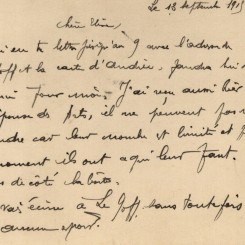 Le 18 Septembre 1915
Chère Élise,
ai eu ta lettre jusqu'au 9 avec l'adresse de
Goff et la carte d'Andrée, faudra lui
pour moi. J'ai reçu aussi hier
réponse de Arts, il ne peuvent pas
dre car leur nombre et limité et
moment ils ont a qui leur faut.
de côté la boîte.
rai écrire à Le Goff, sans toutefois
aucun espoir.